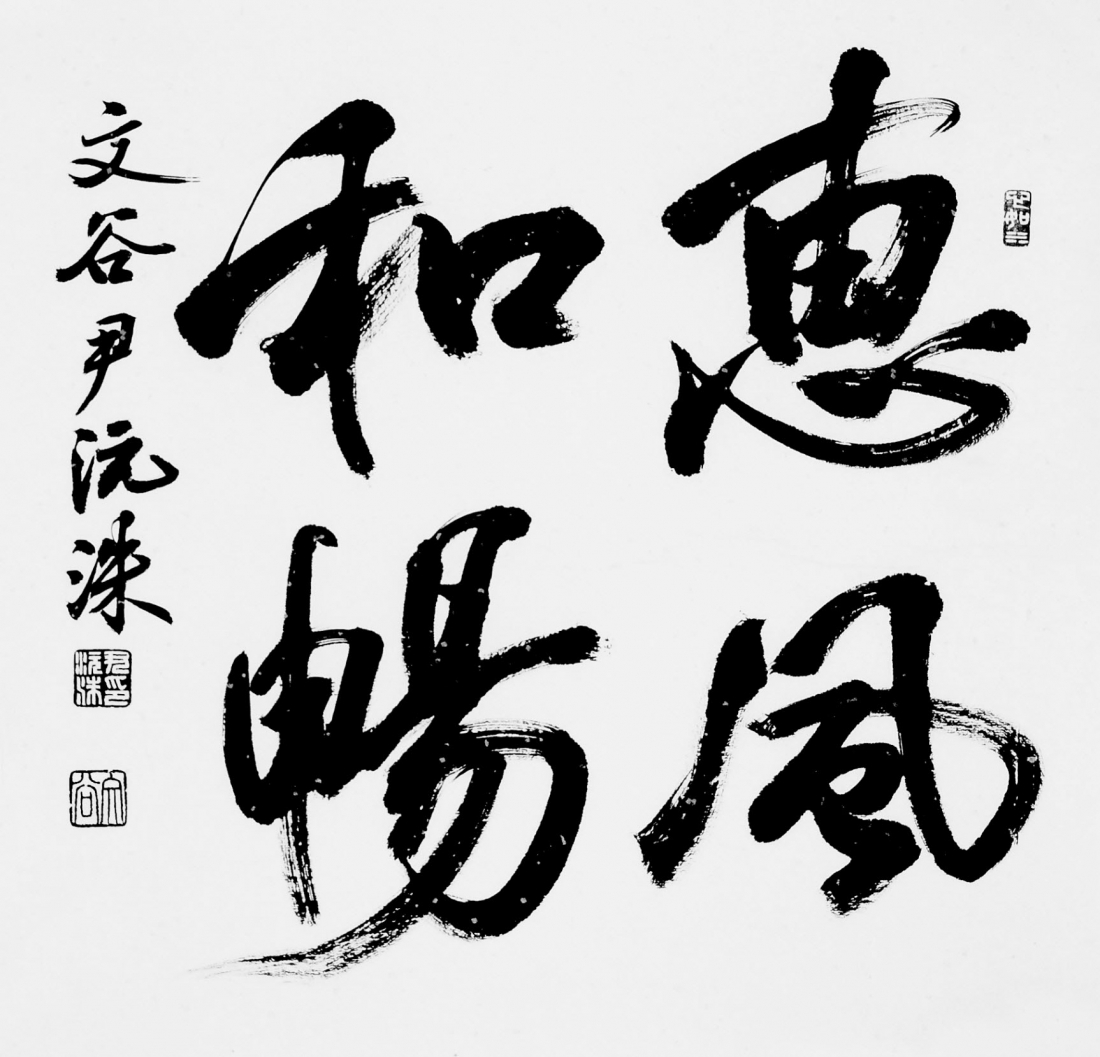 惠風
和暢
文谷尹沅洙